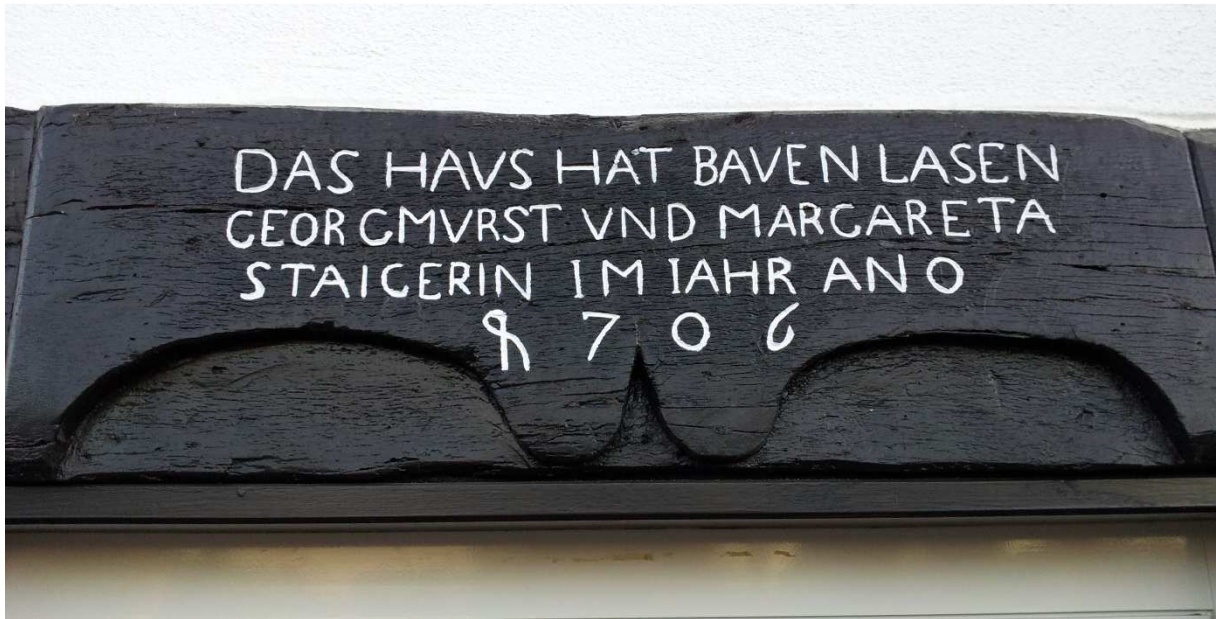 DAS HAVS HAT BAVEN LASEN
GEORGMVRST VND MARGARETA
STAIGERIN IM IAHR ANO
1706